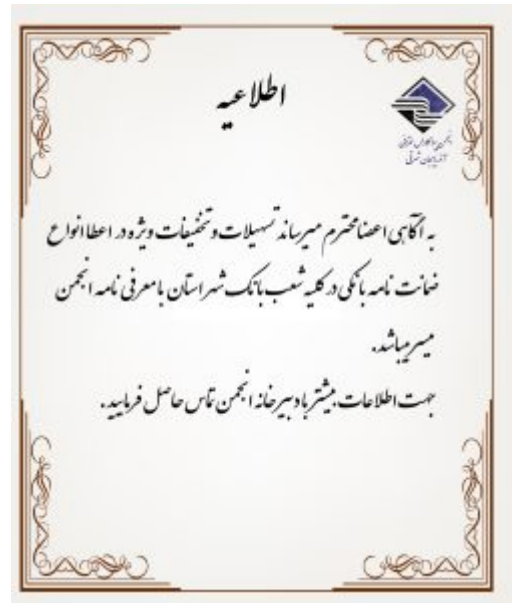 اطلاعیه
آذربایجان شرقی
به آگاهی اعضا محترم میرساند تسهیلات و تخفیفات ویژه در اعطا انواع
ضمانت نامه بانکی در کلیه شعب بانک شهر استان با معرفی نامه انجمن
میسر میباشد.
جهت اطلاعات بیشتر با دبیرخانه انجمن تماس حاصل فرمایید.